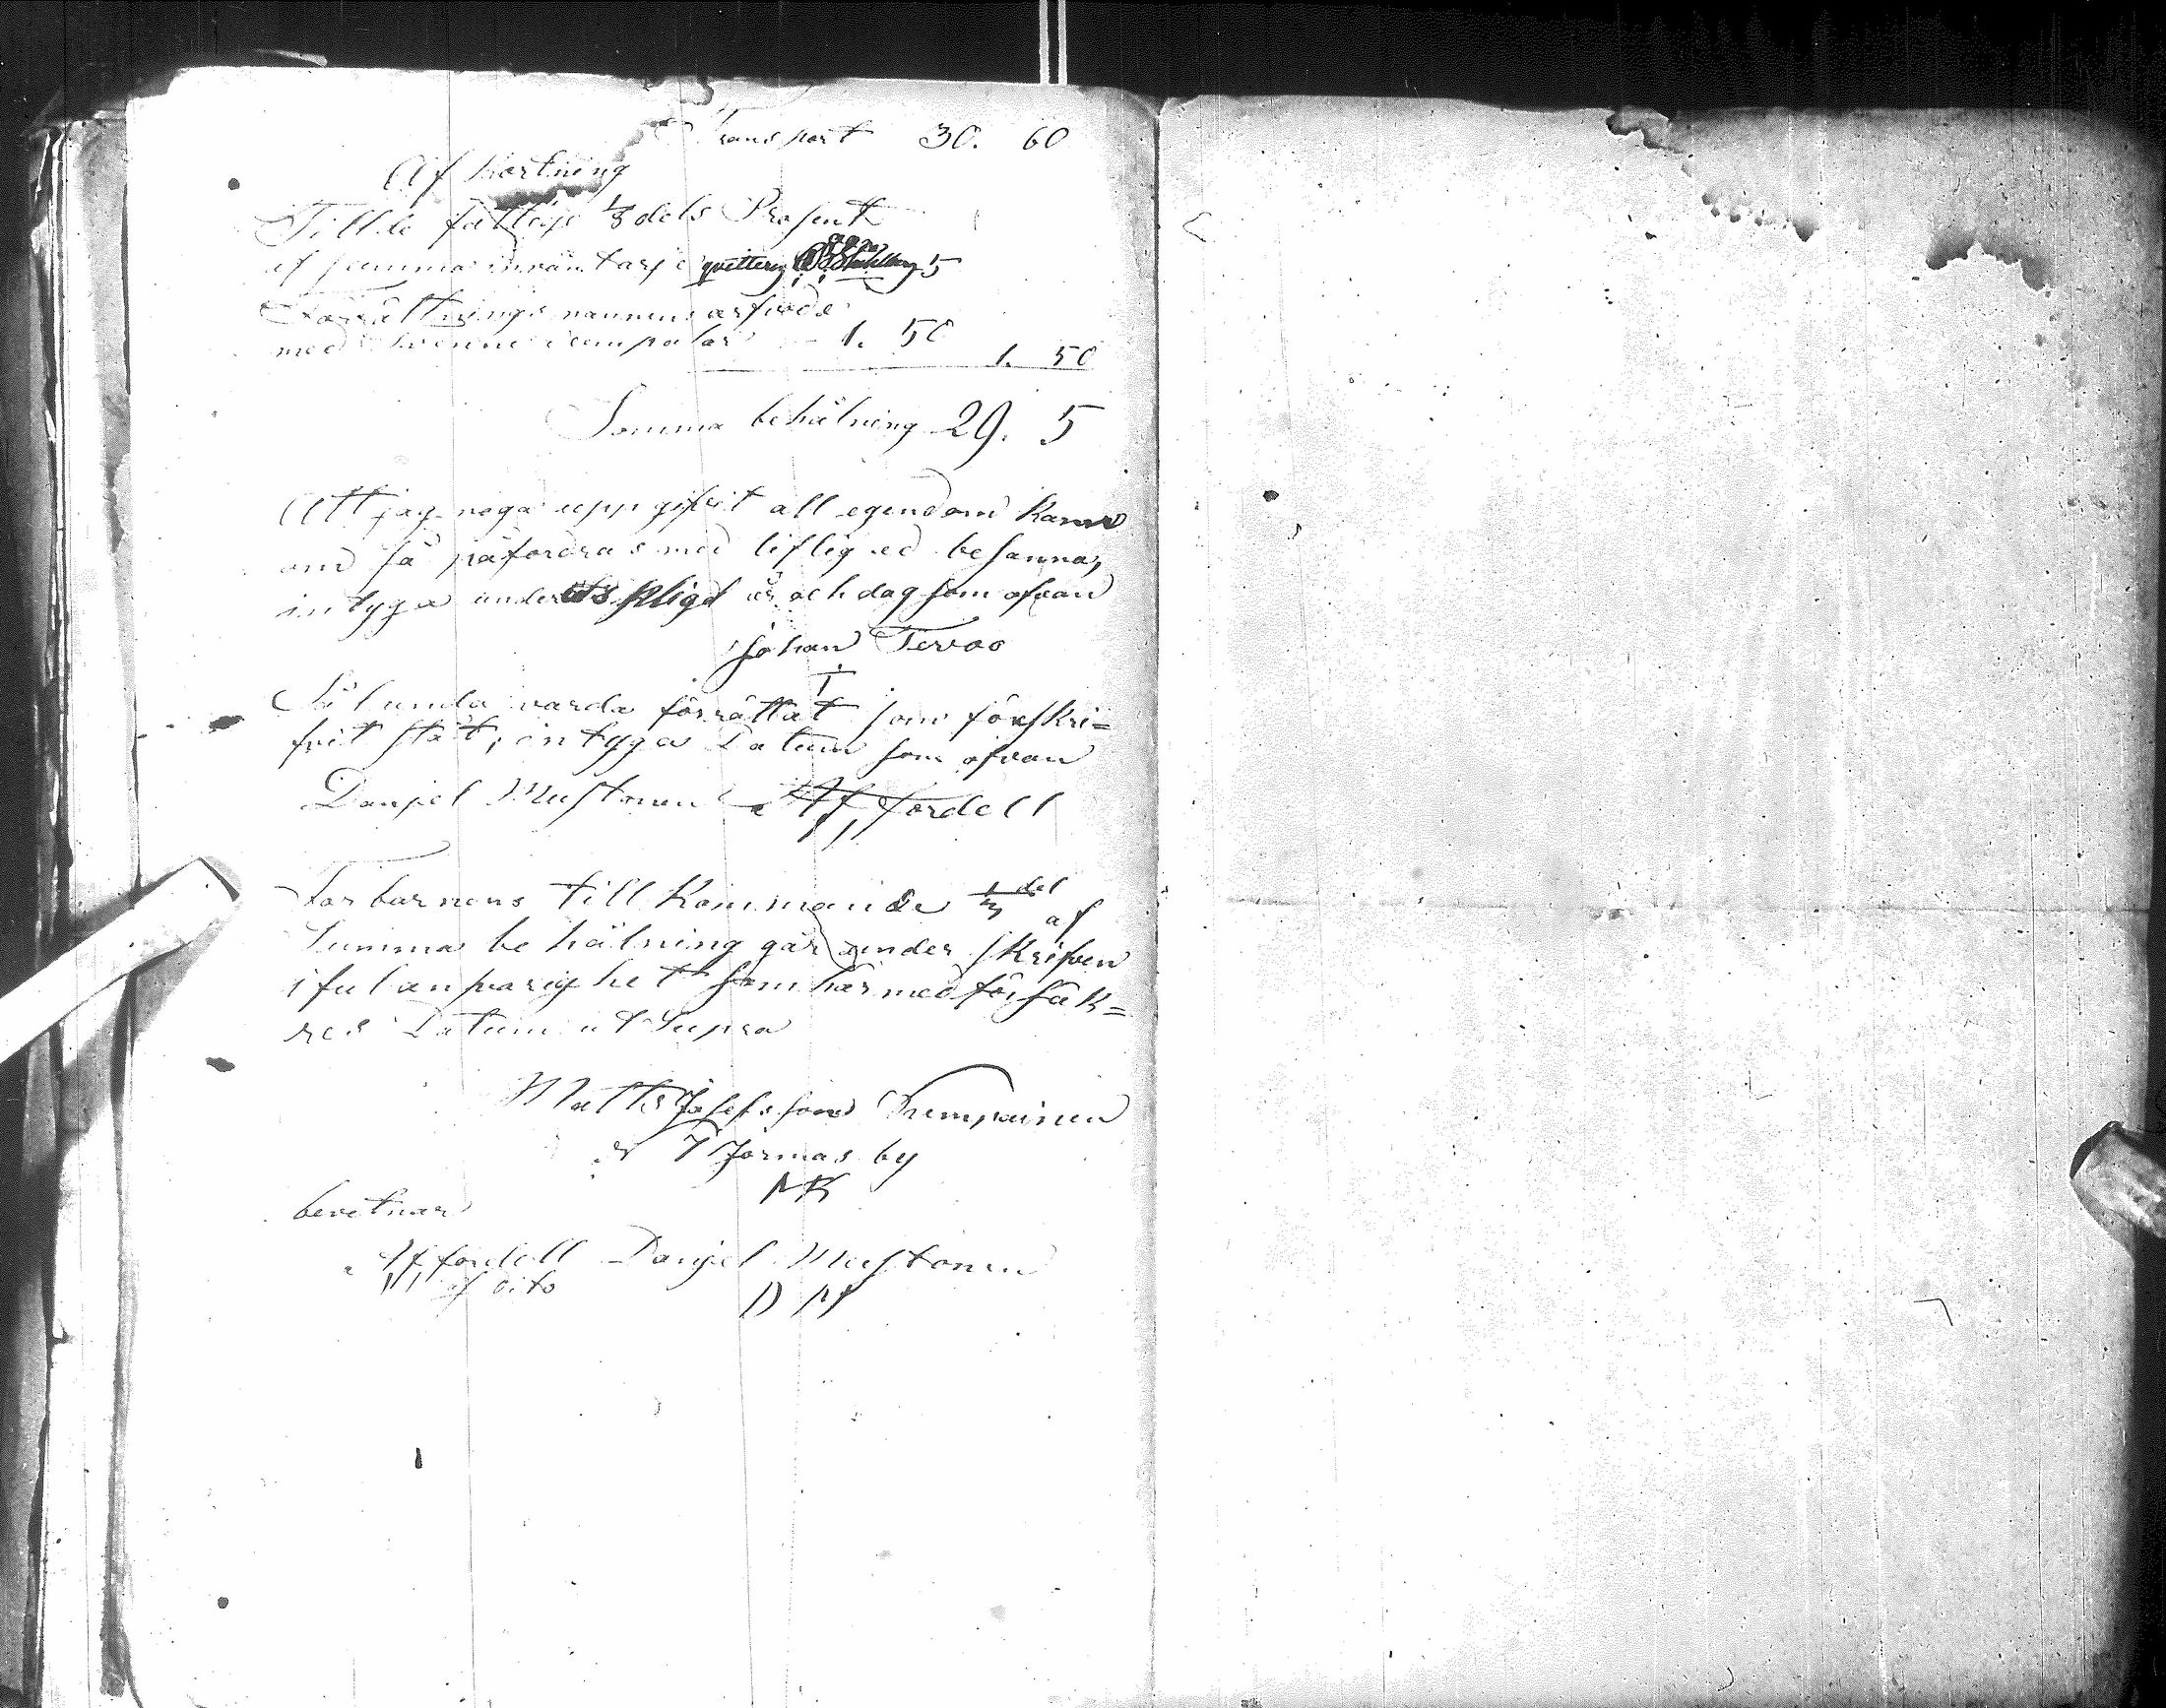 Transport 30. 60
Afkortning
Till de fattige 1/8 dels Prosent
af summa inväntarje qvitteras Stahlberg 5
Förrättnings mannens arfvode
med tvenne exemplar — 1. 50 1. 50
Somma behålning 29. 5
Att jag noga uppgifvit all egendom kan
om så påfordras med liflig ed besanna,
intyga under edspligt år och dag som ofvan
Johan Tervoo
Sålunda varda förrättat som förskri=
fvit stat, intyga Datum som ofvan
Danjel Mustonen Af fordell
För barnens till kommande 1/3 del af
Summa behålning går under skrifven
i ful anparighet som här med försäk=
res Datum ut Supra
Matts Josefsson Trumpainen
i Jormas by
MK
bevitnar
Af fordell Danjel Mustonen
af dito DM